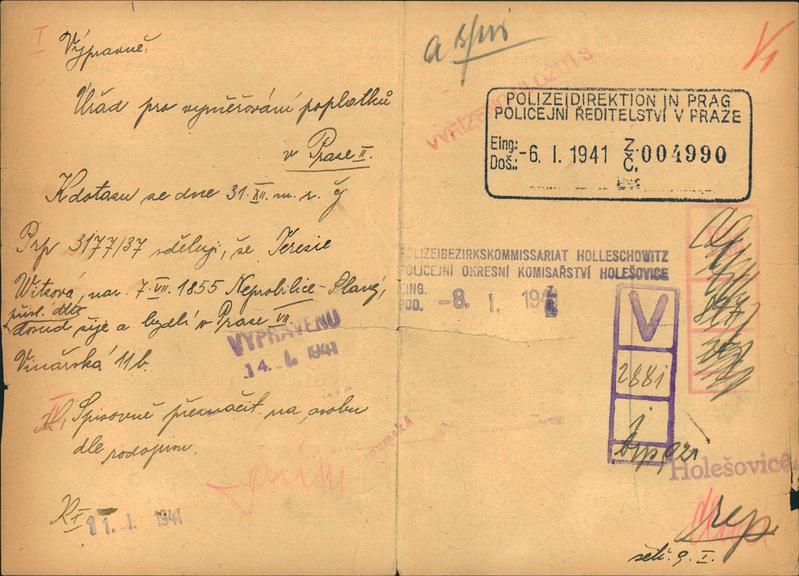 I
Výpravně:
Úřad pro vyměřování poplatků
v Praze II.
K dotazu ze dne 31. XII. m. r. čj
3177/37 sděluji, že Terezie
Witková, nar. 7. VII. 1855 Neprobilice - Slaný,
přísl. dtto
dosud žije a bydlí v Praze VII.
Vinařská 11 b.
VYPRAVENO
14. I. 1941
Spisovně přeznačit na osobu
dle rodopisu.
11. I. 1941
a spis
V1
POLIZEIDIREKTION IN PRAG
POLICEJNÍ ŘEDITELSTVÍ V PRAZE
Eing.:
Doš.: -6. I. 1941 Z. Č. 004990
POLIZEIBEZIRKSKOMMISSARIAT HOLLESCHOWITZ
POLICEJNÍ OKRESNÍ KOMISAŘSTVÍ HOLEŠOVICE
EING.
POD. -8. I. 194
V
2881
1
Holešovice
rep
šetř. 9. I.